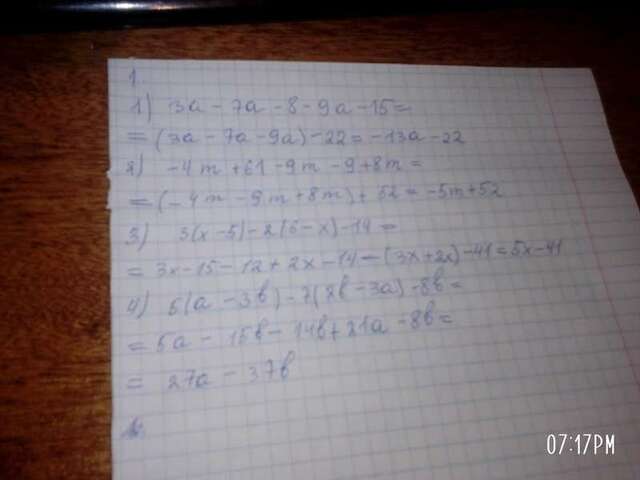 1.
1) 3a - 7a - 8 - 9a - 15 =
= (3a - 7a - 9a) - 22 = -13a - 22
2) -4m + 61 - 9m - 9 + 8m =
= (-4m - 9m + 8m) + 52 = -5m + 52
3) 3(x - 5) - 2(6 - x) - 14 =
= 3x - 15 - 12 + 2x - 14 - (3x + 2x) - 41 = 5x - 41
4) 6(a - 3b) - 7(2b - 3a) - 8b =
= 6a - 15b - 14b + 21a - 8b =
= 27a - 37b
07:17PM